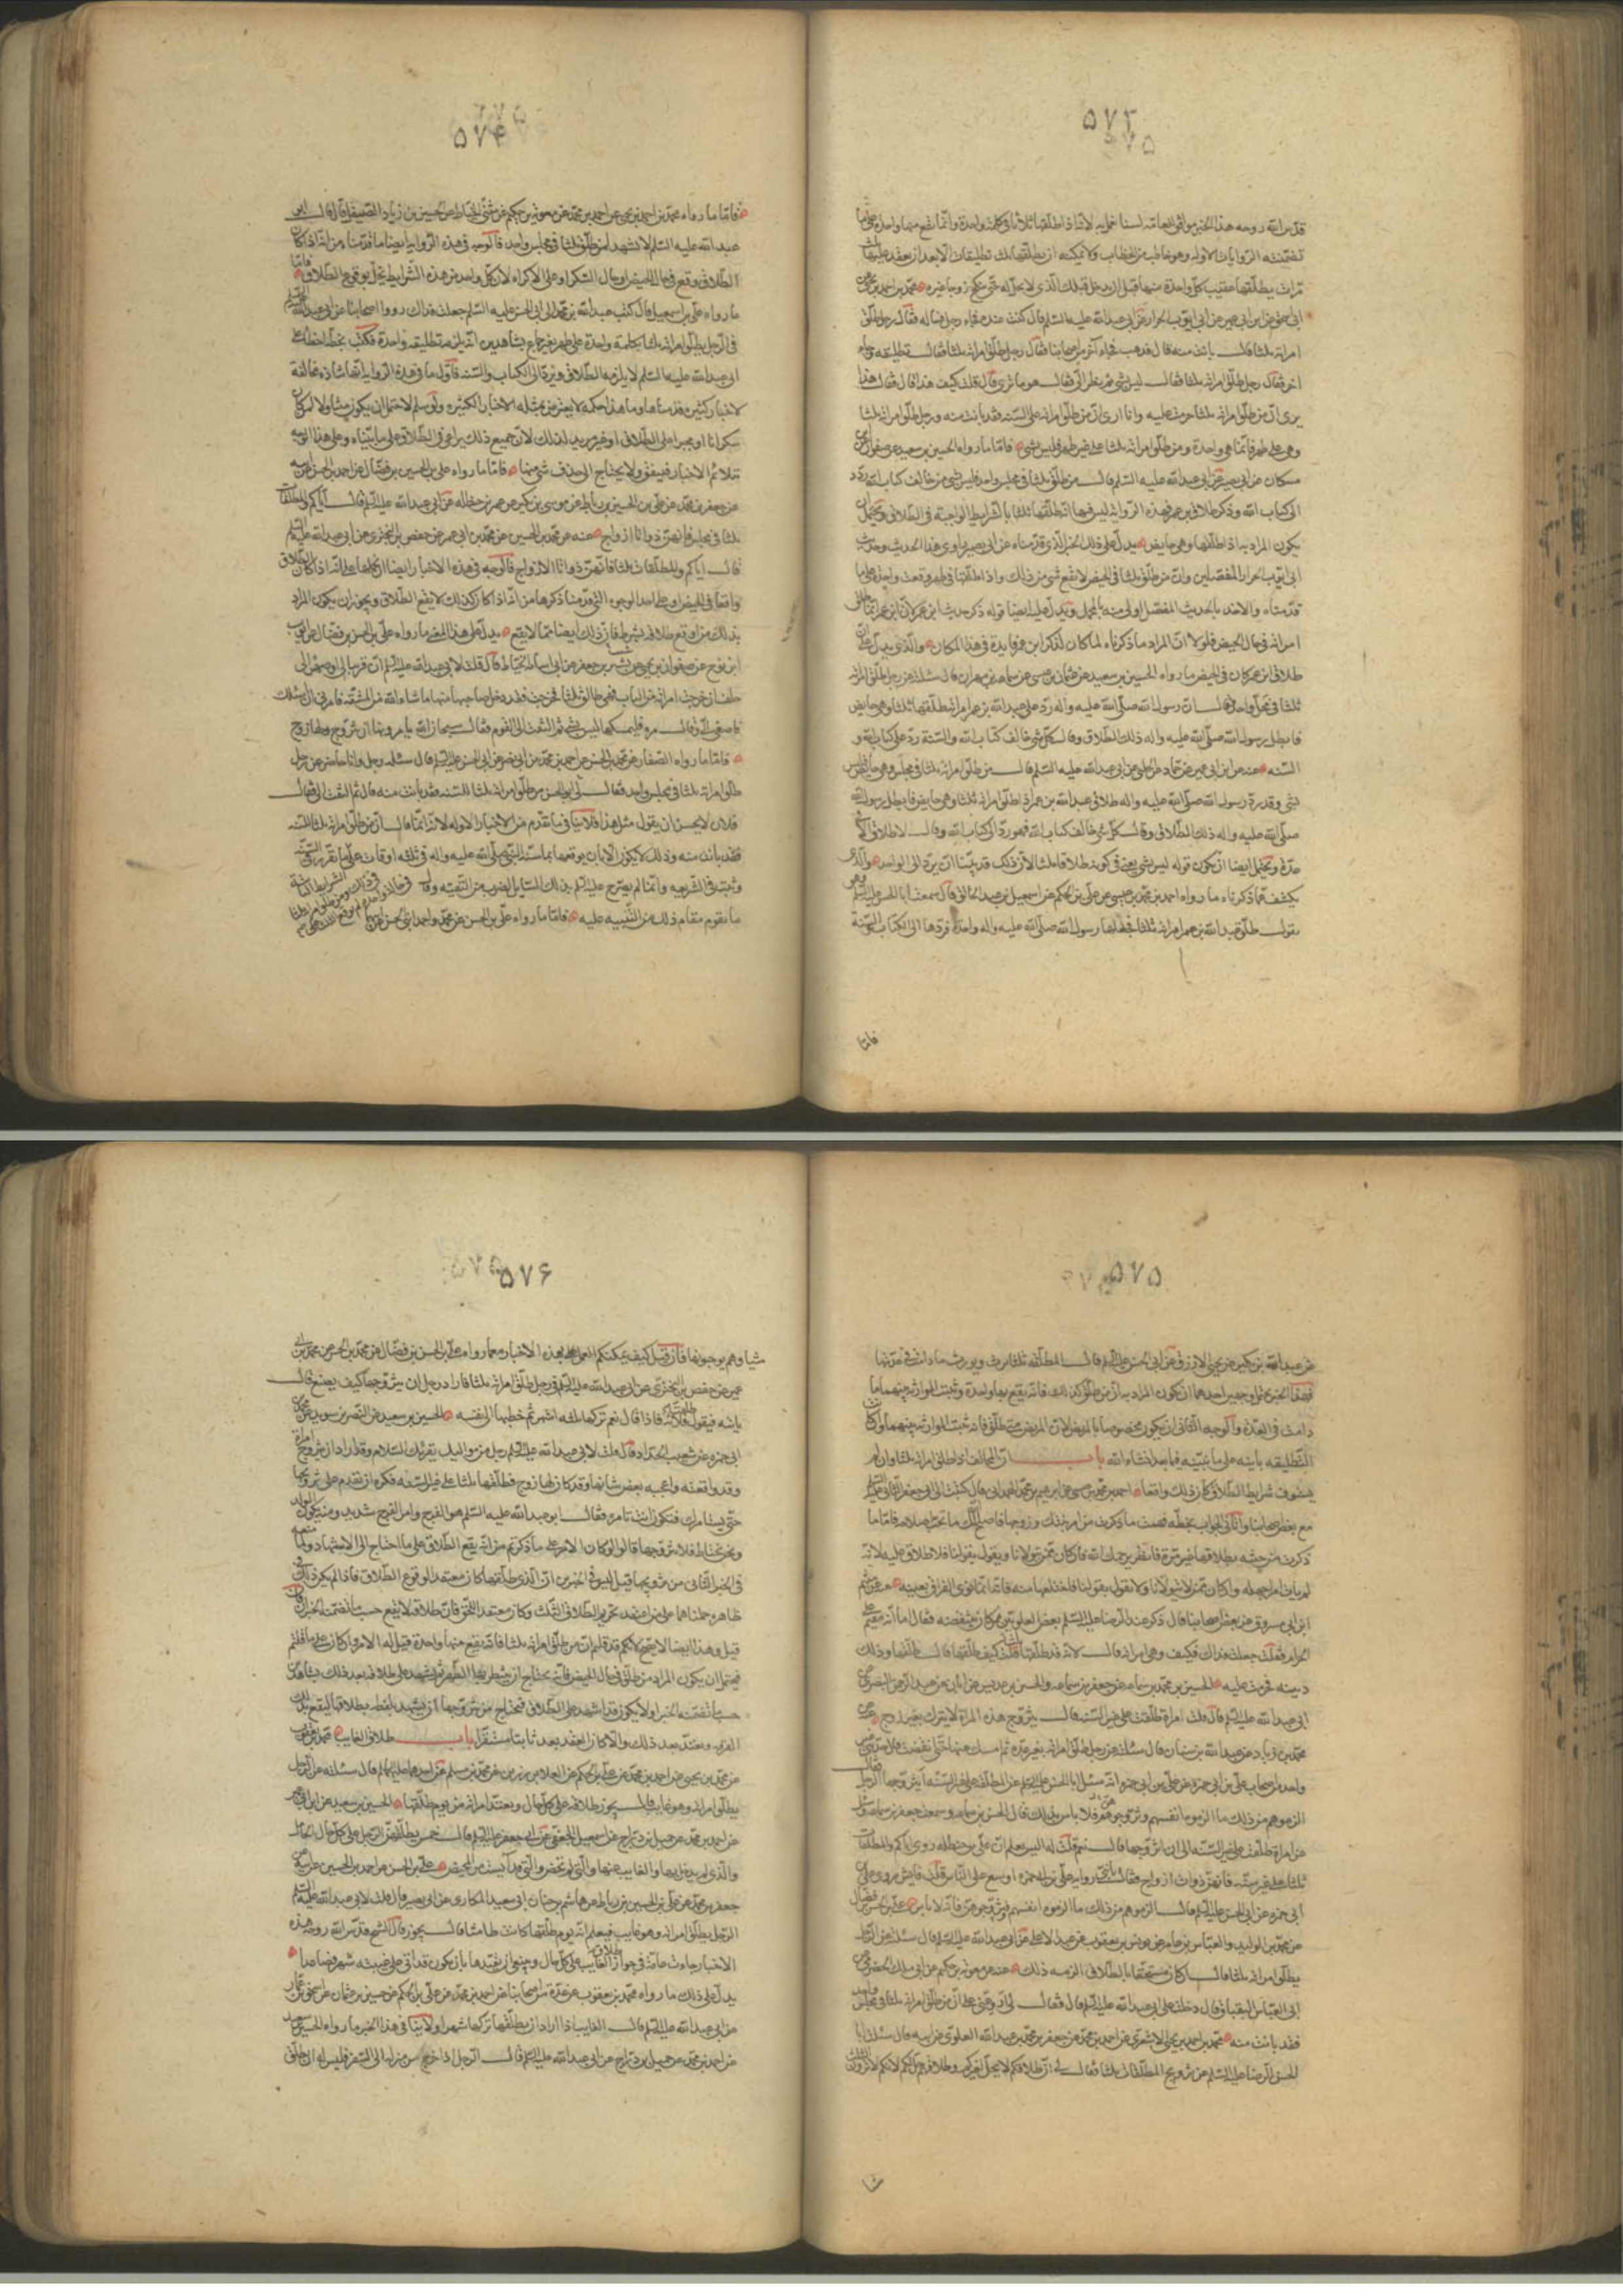 ۵۷۳
قدس الله روحه هذا الخبر موافق للعامه لسنا نعمل به لانا اذا طلقها ثلاثا فى كلمة واحدة وانما تقع منها واحدة على ما
تضمنته الروايات الاوله وهو مخاطب من الخطاب ولا يمكنه ان يطلقها ثلث تطليقات الا بعد ان يعقد عليها ثلث
مرات يطلقها عقيب كل واحدة منها قبل ان يدخل فتلك الذى لا يحل له حتى تنكح زوجا غيره محمد بن احمد بن يحيى
عن ابن ابى عمير عن ابى ايوب الخزاز عن ابى عبد الله عليه السلم قال كنت عنده فجاء رجل فساله فقال رجل طلق
امراته ثلثا قال بانت منه قال فذهب فجاء آخر من اصحابنا فقال رجل طلق امراته ثلثا فقال تطليقه وجاء
اخر فقال رجل طلق امراته ثلثا فقال ليس بشئ ثم نظر الى فقال هو ما ترى قال قلت كيف هذا قال فقال هذا
يرى ان من طلق امراته ثلثا حرمت عليه وانا ارى ان من طلق امراته على السنه فقد بانت منه ورجل طلق امراته ثلثا
وهى على طهر فانما هى واحدة ومن طلق امراته ثلثا على غير طهر فليس بشئ فاما ما رواه الحسين بن سعيد عن صفوان عن ابن
مسكان عن ابى بصير عن ابى عبد الله عليه السلم قال من طلق ثلثا فى مجلس واحد فليس بشئ من خالف كتاب الله رد
الى كتاب الله وذكر طلاق ابن عمر فهذه الرواية ليس فيها انه طلقها ثلثا بالشرايط الواجبة فى الطلاق ويحتمل ان
يكون المراد به اذا طلقها وهى حايض يدل على ذلك الخبر الذى قدمناه عن ابى بصير راوى هذا الحديث وحديث
ابى ايوب الخزاز المفصلين وان من طلق ثلثا فى الحيض لا يقع شئ من ذلك واذا طلقها فى طهر وقعت واحدة على ما
قدمناه والاخذ بالحديث المفصل اولى منه بالمجمل ويدل عليه ايضا قوله ذكر حديث ابن عمر لان ابن عمر انما طلق
امراته فى حال الحيض فلولا ان المراد ما ذكرناه لما كان لذكر ابن عمر فايدة فى هذا المكان والذى يدل على ان
طلاق ابن عمر كان فى الحيض ما رواه الحسين بن سعيد عن عثمان بن عيسى عن سماعه بن مهران قال سئلته عن رجل طلق امراته
ثلثا فى مجلس واحد قال ان رسول الله صلى الله عليه واله رد على عبد الله بن عمر امراته طلقها ثلثا وهى حايض
فابطل رسول الله صلى الله عليه واله ذلك الطلاق وقال كل شئ خالف كتاب الله والسنة رد على كتاب الله و
السنه عنه عن ابن ابى عمير عن حماد عن الحلبى عن ابى عبد الله عليه السلم قال من طلق امراته ثلثا فى مجلس وهى حايض فليس
بشئ وقد رد رسول الله صلى الله عليه واله طلاق عبد الله بن عمر اذ طلق امراته ثلثا وهى حايض فابطل رسول الله
صلى الله عليه واله ذلك الطلاق وقال كل شئ خالف كتاب الله فهو رد الى كتاب الله وقال لا طلاق الا فى
عدة ويحتمل ايضا ان يكون قوله ليس بشئ يعنى فى كونه طلاقا ثلثا لان ذلك قد بينا انه يرد الى الواحد والذى
يكشف عما ذكرناه ما رواه احمد بن محمد بن عيسى عن على بن الحكم عن اسمعيل بن عبد الخالق قال سمعت ابا الحسن عليه السلم وهو
يقول طلق عبد الله بن عمر امراته ثلثا فجعلها رسول الله صلى الله عليه واله واحدة فردها الى الكتاب والسنة
فاما
۵۷۴
فاما ما رواه محمد بن احمد بن يحيى عن احمد بن محمد عن معوية بن حكيم عن مثنى الحناط عن الحسن بن زياد الصيقل قال قال ابو
عبد الله عليه السلم لا تشهد لمن طلق ثلثا فى مجلس واحد فالوجه فى هذه الرواية ايضا ما قدمناه من انه اذا كان
الطلاق وقع فى حال الحيض او حال السكر او على الاكراه لان كل واحد من هذه الشرايط يخل بوقوع الطلاق فاما
ما رواه على بن اسمعيل قال كتب عبد الله بن محمد الى ابى الحسن عليه السلم جعلت فداك رووا اصحابنا عن ابى عبد الله عليه السلم
فى الرجل يطلق امراته ثلثا بكلمة واحدة على طهر بغير جماع بشاهدين انه يلزمه تطليقه واحدة فكتب بخطه اخطئ على
ابى عبد الله عليه السلم لا يلزمه الطلاق ويرد الى الكتاب والسنه فاول ما فى هذه الرواية انها شاذه مخالفة
لاخبار كثيرة قدمناها وما هذا حكمه لا يعترض بمثله الاخبار الكثيرة ولو سلم لاحتمل ان يكون متناولا لمن كان
سكرانا او مجبرا على الطلاق او غير مريد لذلك لان جميع ذلك يراعى فى الطلاق على ما بيناه وعلى هذا الوجه
تتلائم الاخبار فيتفق ولا يحتاج الى حذف شئ منها فاما ما رواه على بن الحسن بن فضال عن احمد بن الحسن عن ابيه
عن جعفر بن محمد عن على بن الحسن بن رباط عن موسى بن بكير عن عمر بن حنظله عن ابى عبد الله عليه السلم قال اياكم والمطلقات
ثلثا فى مجلس فانهن ذوات ازواج عنه عن محمد بن الحسين عن محمد بن ابى عمير عن حفص بن البخترى عن ابى عبد الله عليه السلم
قال اياكم والمطلقات ثلثا فانهن ذوات الازواج فالوجه فى هذه الاخبار ايضا ان نحملها على انه اذا كان الطلاق
واقعا فى الحيض او على احد الوجوه التى قدمنا ذكرها من انه اذا كان كذلك لا يقع الطلاق ويجوز ان يكون المراد
بذلك من اوقع طلاقه بشرط فان ذلك ايضا مما لا يقع يدل على هذا المعنى ما رواه على بن الحسن بن فضال عن ايوب
ابن نوح عن صفوان بن يحيى عن بشير بن جعفر عن ابى اسامة الحناط قال قلت لابى عبد الله عليه السلم ان قريبا لى او صهرا لى
حلف ان خرجت امراته من الباب فهى طالق ثلثا فخرجت فقد دخل صاحبها منها ما شاء الله من المشقة فامرنى ان اسئلك
فاصغى الى فقال مره فليمسكها ليس بشئ ثم التفت الى القوم فقال سبحان الله يامرونها ان تتزوج ولها زوج
فاما ما رواه الصفار عن محمد بن الحسين عن احمد بن محمد بن ابى نصر عن ابى الحسن عليه السلم قال سئله رجل وانا حاضر عن رجل
طلق امراته ثلثا فى مجلس واحد فقال لى ابو الحسن من طلق امراته ثلثا للسنه فقد بانت منه قال ثم التفت الى فقال
فلان لا يحسن ان يقول مثل هذا فلا ينافى ما تقدم من الاخبار الاوله لانه انما قال من طلق امراته ثلثا للسنه
فقد بانت منه وذلك لا يكون الا بان يوقعها كما سنه النبى صلى الله عليه واله فى ثلثه اوقات على ما تقرر فى السنه
وثبت فى الشريعه وانما لم يصرح عليه السلم بذلك للسايل لضرب من التقيه وقال
ما يقوم مقام ذلك من التنبيه عليه فاما ما رواه على بن الحسن عن محمد واحمد ابنى الحسن عن ابيهما
۵۷۵
عن عبد الله بن بكير عن يحيى الازرق عن ابى الحسن عليه السلم قال المطلقه ثلثا ترث ويورث ما دامت فى عدتها
فهذا الخبر يحتمل وجهين احدهما ان يكون المراد به ان من طلق كذلك فانه يقع بها واحدة وثبتت الموارثه بينهما ما
دامت فى العدة والوجه الثانى ان يكون مخصوصا بالمريض لان المريض متى طلق فانه ثبتت الموارثه بينهما وان كانت
التطليقه باينه على ما نبينه فيما بعد انشاء الله باب ان المخالف اذا طلق امراته ثلثا وان لم
يستوف شرايط الطلاق كان ذلك واقعا احمد بن محمد بن عيسى عن ابرهيم بن محمد الهمدانى قال كتبت الى ابى جعفر الثانى عليه السلم
مع بعض اصحابنا واتانى الجواب بخطه فهمت ما ذكرت من امر ابنتك وزوجها فاصلح الله لك ما تحب صلاحه فاما ما
ذكرت من حنثه بطلاقها غير مرة فانظر يرحمك الله فان كان ممن يتولانا ويقول بقولنا فلا طلاق عليه لانه
لم يات امرا جهله وان كان ممن لا يتولانا ولا يقول بقولنا فاختلعها منه فانه انما نوى الفراق بعينه
ابن ابى مسروق عن بعض اصحابنا قال ذكر عند الرضا عليه السلم بعض العلويين ممن كان ينتقصه فقال اما انه مقيم على
حرام فقلت جعلت فداك فكيف وهى امراته قال لانه قد طلقها قلت كيف طلقها قال طلقها وذلك
دينه فحرمت عليه الحسن بن محمد بن سماعه عن جعفر بن سماعه والحسن بن عديس عن ابان عن عبد الرحمن البصرى عن
ابى عبد الله عليه السلم قال قلت امراة طلقت على غير السنه قال يتزوج هذه المراة لا تترك بغير زوج عنه عن
محمد بن زياد عن عبد الله بن سنان قال سئلته عن رجل طلق امراته بغير عدة ثم امسك عنها حتى انقضت
واحد من اصحاب على بن ابى حمزه عن على بن ابى حمزه انه سئل ابا الحسن عليه السلم عن المطلقة على غير السنه ايتزوجها الرجل فقال
الزموهم من ذلك ما الزموه انفسهم وتزوجوهن فلا باس بذلك قال الحسن بن سماعه وسمعت جعفر بن سماعه وسئل
عن امراة طلقت على غير السنه الى ان اتزوجها قال نعم قلت له اليس تعلم ان على بن حنظله روى اياكم والمطلقات
ثلثا على غير السنه فانهن ذوات ازواج فقال يا بنى رواية على بن ابى حمزه اوسع على الناس قلت فايش روى على بن
ابى حمزه عن ابى الحسن عليه السلم قال الزموهم من ذلك ما الزموه انفسهم وتزوجوهن فانه لا باس على بن الحسن بن فضال
عن محمد بن الوليد والعباس بن عامر عن يونس بن يعقوب عن عبد الاعلى عن ابى عبد الله عليه السلم قال سئلته عن الرجل
يطلق امراته ثلثا قال ان كان مستخفا بالطلاق الزمه ذلك عنه عن معويه بن حكيم عن ابى مالك الحضرمى عن
ابى العباس البقباق قال دخلت على ابى عبد الله عليه السلم قال فقال لى ارو عنى على ان من طلق امراته ثلثا فى مجلس واحد
فقد بانت منه محمد بن احمد بن يحيى الاشعرى عن احمد بن محمد عن جعفر بن محمد بن عبد الله العلوى عن ابيه قال سئلت ابا
الحسن الرضا عليه السلم عن تزويج المطلقات ثلثا فقال لى ان طلاقكم لا يحل لغيركم وطلاقهم يحل لكم لانكم لا ترون الثلث
شيئا
۵۷۶
شيا وهم يوجبونها فان قيل كيف يمكنكم العمل على هذه الاخبار مع ما رواه على بن الحسن بن فضال عن محمد بن الحسن عن محمد بن ابى
عمير عن حفص بن البخترى عن ابى عبد الله عليه السلم فى رجل طلق امراته ثلثا فاراد رجل ان يتزوجها كيف يصنع قال
ياتيه فيقول طلقت فلانة فاذا قال نعم تركها ثلثه اشهر ثم خطبها الى نفسه الحسين بن سعيد عن النضر بن سويد عن محمد بن
ابى حمزه عن شعيب الحداد قال قلت لابى عبد الله عليه السلم رجل من مواليك يقرئك السلام وقد اراد ان يتزوج امراة
وقد وافقته واعجبه بعض شانها وقد كان لها زوج فطلقها ثلثا على غير السنه وقد كره ان يقدم على تزويجها
حتى يستامرك فتكون انت تامره فقال ابو عبد الله عليه السلم هو الفرج وامر الفرج شديد ومنه يكون الولد
ونحن نحتاط فلا يتزوجها قالوا لو كان الامر على ما ذكرتم من انه يقع الطلاق على ما احتاج الى الاستشهاد ولما منعه
فى الخبر الثانى من تزويجها قيل ليس فى الخبرين ان الذى طلقها كان معتقدا لوقوع الطلاق فاذا لم يكن ذلك فى
ظاهره حملناهما على من اعتقد تحريم الطلاق الثلث وكان معتقد اللحق فان طلاقه لا يقع حسب ما تضمنه الخبران فان
قيل وهذا ايضا لا يصح لانكم قد قلتم ان من طلق امراته ثلثا فانه تقع منها واحدة قيل له الامر وان كان على ما قلتم
فيحتمل ان يكون المراد من طلق فى حال الحيض فانه يحتاج ان ينتظر بها الطهر ثم يشهد على طلاقه بعد ذلك بشاهدين
حسب ما تضمنه الخبر او لا يكون قد اشهد على الطلاق فيحتاج من يتزوجها ان يستشهد بلفظه بطلاقها ليقع بذلك
الفرقه وتعتد بعد ذلك والا كان العقد بعد ثابتا مستقرا باب طلاق الغايب محمد بن يعقوب
عن محمد بن يحيى عن احمد بن محمد عن على بن الحكم عن العلا بن رزين عن محمد بن مسلم عن احدهما عليهما السلم قال سئلته عن الرجل
يطلق امراته وهو غايب قال يجوز طلاقه على كل حال وتعتد امراته من يوم طلقها الحسين بن سعيد عن ابن ابى عمير
عن احمد بن محمد عن جميل بن دراج عن اسمعيل الجعفى عن ابى جعفر عليه السلم قال خمس يطلقهن الرجل على كل حال الحامل
والذى لم يدخل بها والغايب عنها والتى لم تحض والتى قد آيست من المحيض على بن الحسن عن احمد بن الحسين عن ابيه عن
جعفر بن محمد عن على بن الحسن بن رباط عن هاشم بن حنان ابى سعيد المكارى عن ابى بصير قال قلت لابى عبد الله عليه السلم
الرجل يطلق امراته وهو غايب فيعلم انه يوم طلقها كانت طامثا قال يجوز قال الشيخ قدس الله روحه هذه
الاخبار جاءت عامة فى جواز طلاق الغايب على كل حال وينبغى ان نقيدها بان يكون قد اتى على غيبته شهر فصاعدا
يدل على ذلك ما رواه محمد بن يعقوب عن عدة من اصحابنا عن احمد بن محمد عن على بن الحكم عن حسين بن عثمان عن اسحق بن عمار
عن ابى عبد الله عليه السلم قال الغايب اذا اراد ان يطلقها تركها شهرا ولا ينافى هذا الخبر ما رواه الحسين بن سعيد
عن احمد بن محمد عن جميل بن دراج عن ابى عبد الله عليه السلم قال الرجل اذا خرج من منزله الى السفر فليس له ان يطلق